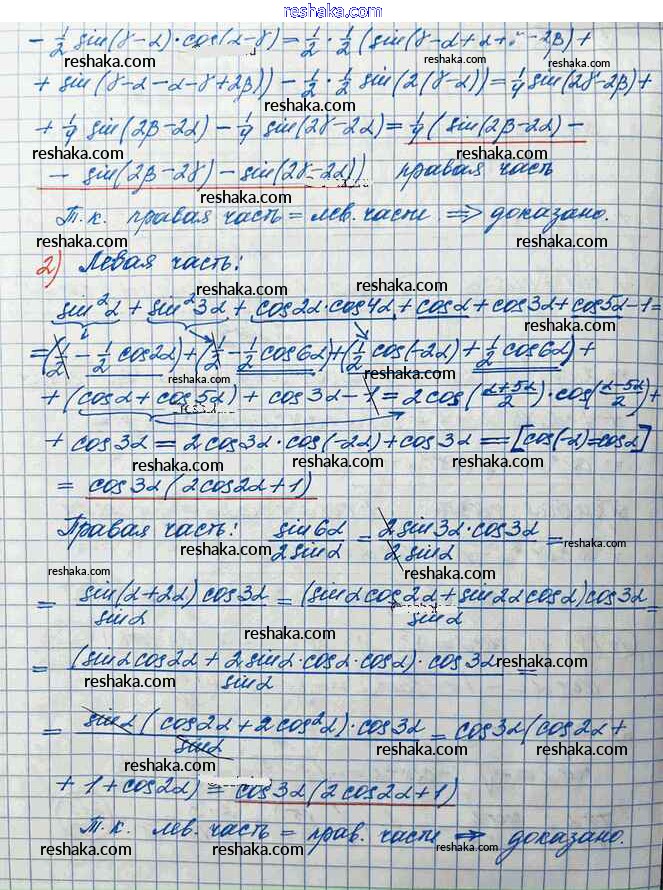 reshaka.com
- 1/2 sin(γ-α)·cos(α-γ) = 1/2 · 1/2 (sin(γ-α+α+γ-2β) +
+ sin(γ-α-α-γ+2β)) - 1/2 · 1/2 sin(2(γ-α)) = 1/4 sin(2γ-2β) +
+ 1/4 sin(2β-2α) - 1/4 sin(2γ-2α) = 1/4 ( sin(2β-2α) -
- sin(2β-2γ) - sin(2γ-2α)) правая часть
Т.к. правая часть = лев. части ⇒ доказано.
2) Левая часть:
sin²α + sin²3α + cos2α·cos4α + cosα + cos3α + cos5α - 1 =
= (1/2 - 1/2 cos2α) + (1/2 - 1/2 cos6α) + (1/2 cos(-2α) + 1/2 cos6α) +
+ (cosα + cos5α) + cos3α - 1 = 2cos((α+5α)/2)·cos((α-5α)/2) +
+ cos3α = 2cos3α·cos(-2α) + cos3α = [cos(-α)=cosα]
= cos3α(2cos2α+1)
Правая часть: sin6α/2sinα = 2sin3α·cos3α/2sinα =
= sin(α+2α)cos3α/sinα = (sinαcos2α + sin2αcosα)cos3α/sinα =
= (sinαcos2α + 2sinα·cosα·cosα)·cos3α/sinα =
= sinα(cos2α + 2cos²α)·cos3α/sinα = cos3α(cos2α +
+ 1 + cos2α) = cos3α(2cos2α+1)
Т.к. лев. часть = прав. части ⇒ доказано.
reshaka.com